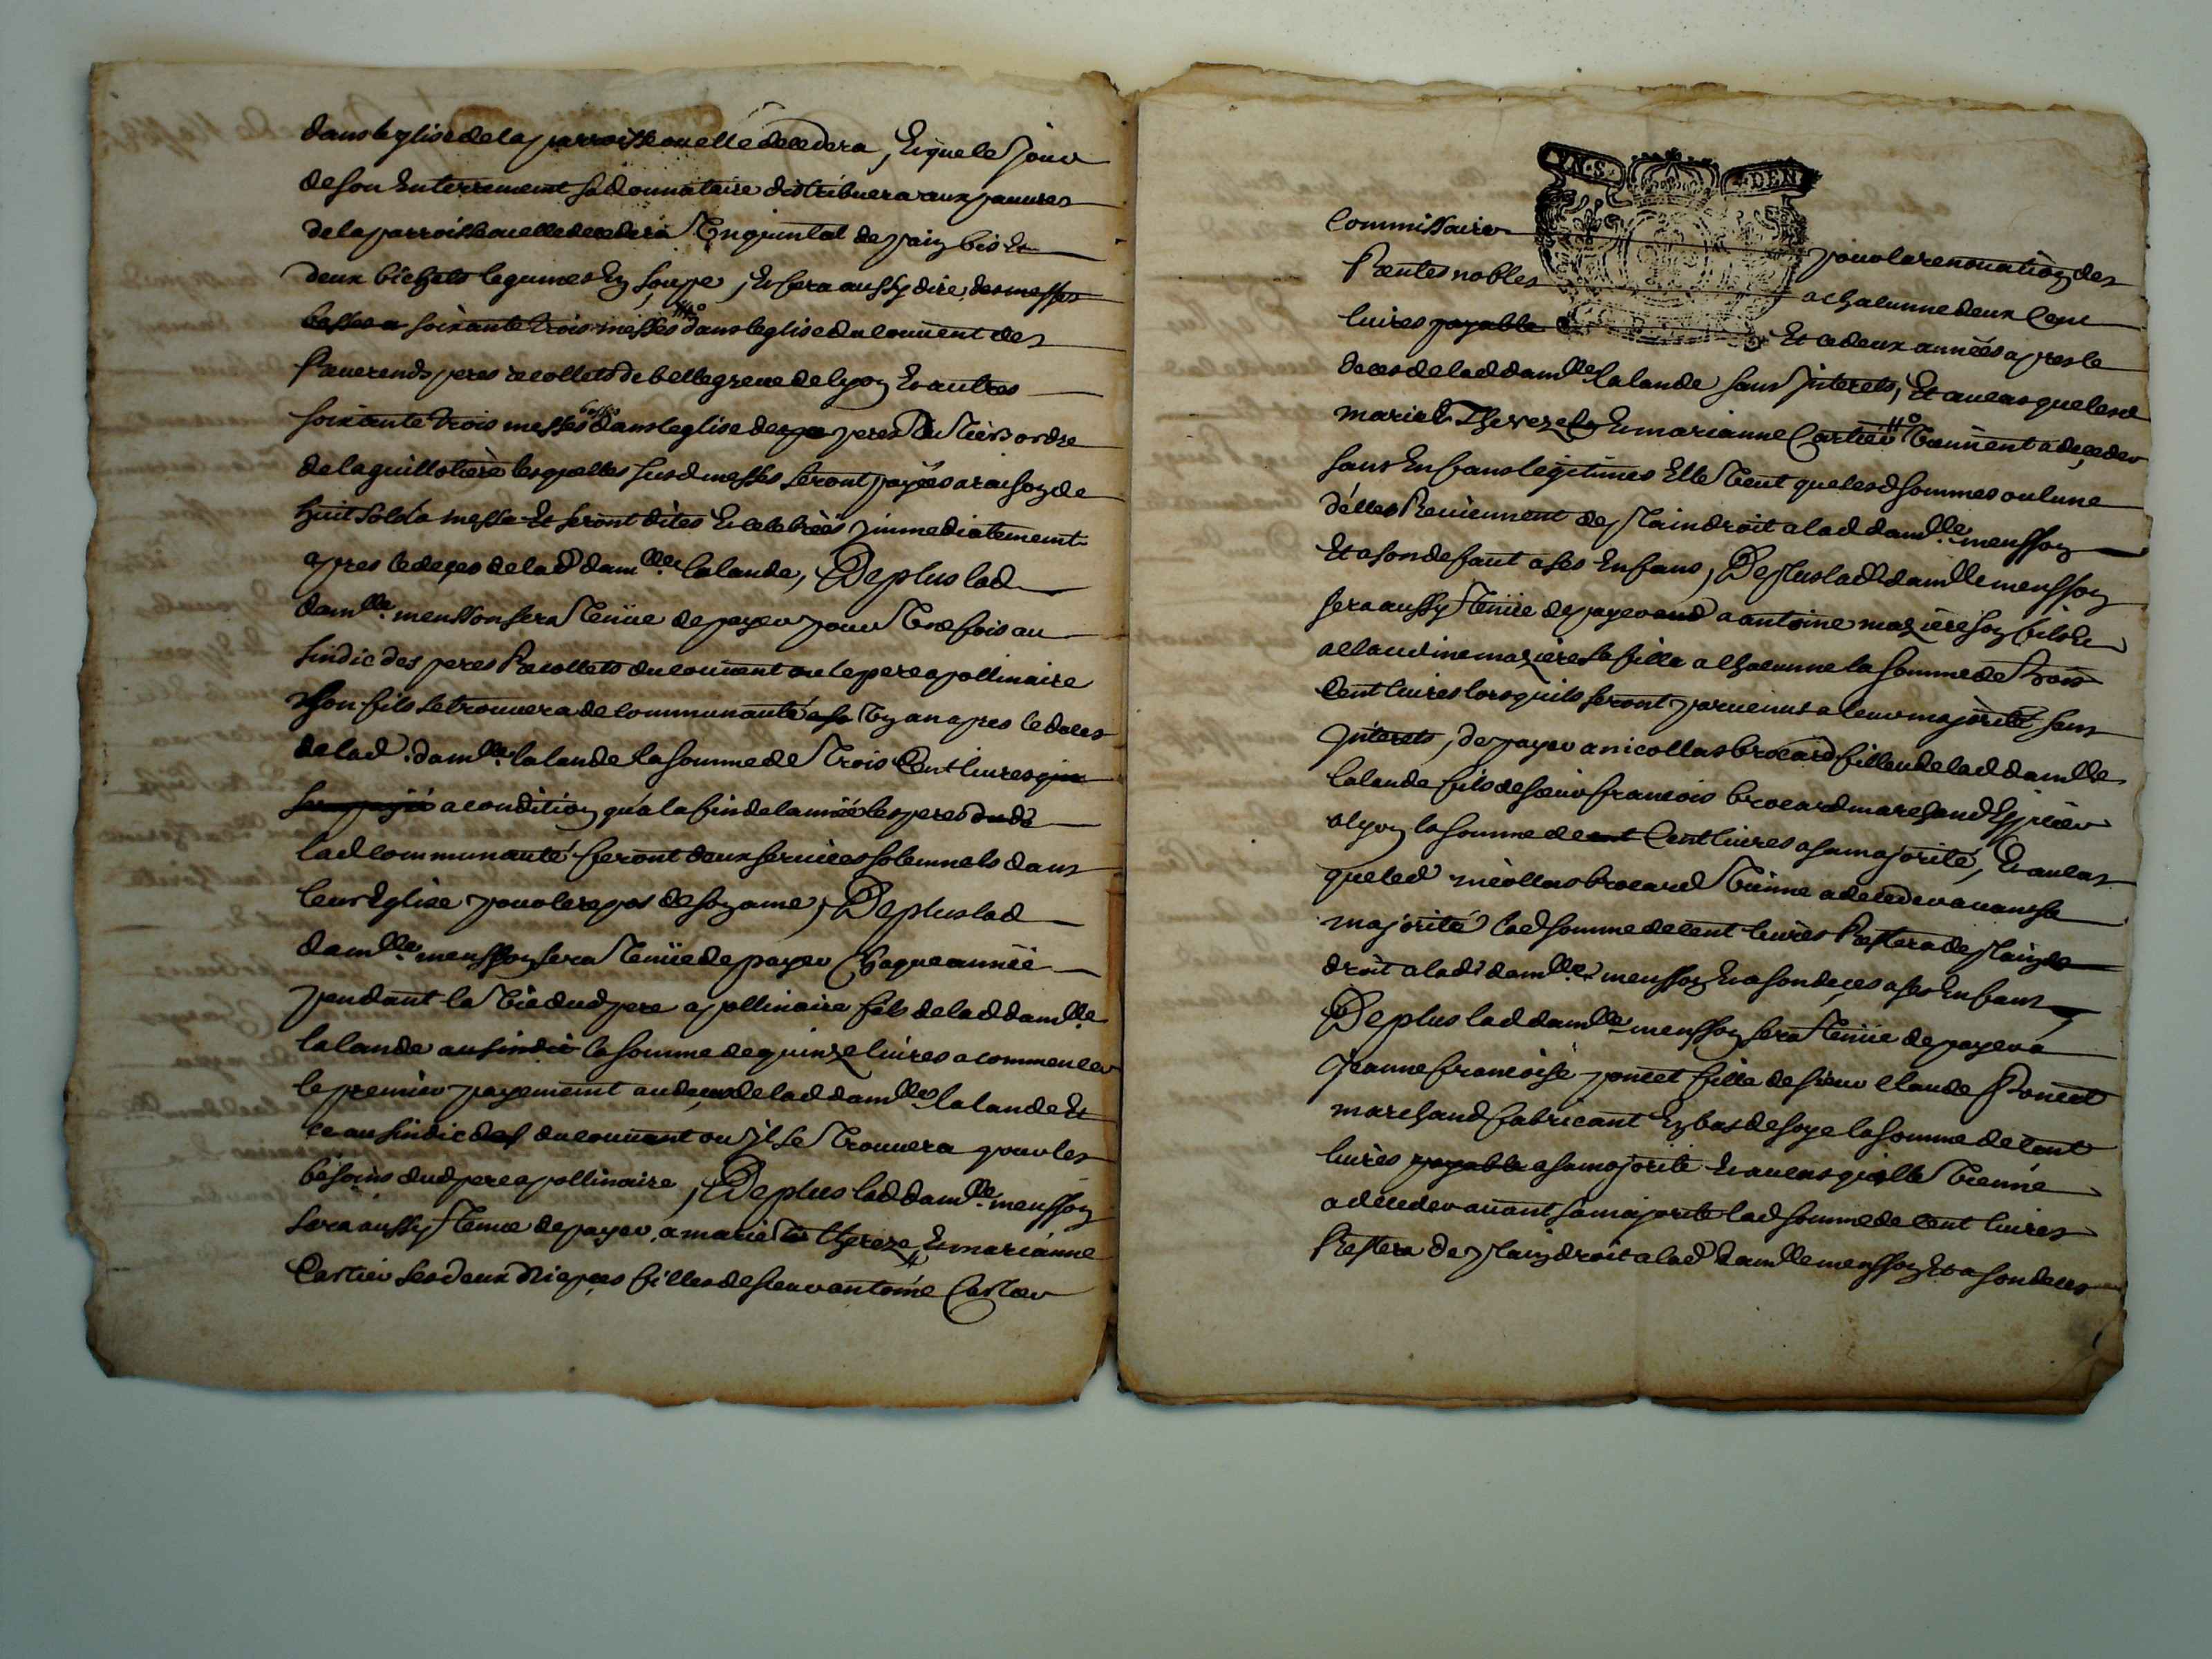 dans leglise de la parroisse ou elle decedera, Et que le jour
de son Enterrement sa donnataire distribuera aux pauvres
de la parroisse ou elle decedera un quintal de pain bis Et
deux bichets legumes En soupe, Et fera aussy dire des messes
basses a soixante trois messes dans leglise du couuent des
Reuerends peres recollets de bellegreue de lyon Et autres
soixante trois messes basses dans leglise des peres du tiers ordre
de la guillotiere lesquelles susd messes seront payées a raison de
huit sols la messe Et seront dites Et celebrées jmmediatement
apres le deces de lad damlle lalande, De plus lad
damlle mensson sera tenüe de payer pour une fois au
sindic des peres Recollets du couuent ou le pere apollinaire
son fils se trouuera de communauté un an apres le deces
de lad. damlle lalande la somme de trois Cent liures
a condition qu'a la fin de lannée les peres de
lad communauté feront deux seruices solemnels dans
leur Eglise pour le repos de son ame, De plus lad
damlle mensson sera tenüe de payer Chaque année
pendant la vie dud pere apollinaire fils de lad damlle
lalande au sindic la somme de quinze liures a commencer
le premier payement au deces de lad damlle lalande Et
ce au sindic du couuent ou jl se trouuera pour les
besoins dud pere apollinaire, De plus lad damlle mensson
sera aussy tenüe de payer a marie thereze Et marianne
Cartier ses deux Niepces filles de sieur antoine Cartier
YN.S. DEN
Commissaire pour la renouation des
Rentes nobles a chacunne deux Cent
liures payable Et ce deux années apres le
deces de lad damlle lalande sans jnterets, Et au cas que lesd
marie Thereze Et marianne Cartier viennent a deceder
sans Enfans legitimes Elle veut que lesd sommes ou lune
d'elles Reuiennent de plain droit a lad damlle mensson
Et a son defaut a ses Enfans, De plus lad damlle mensson
sera aussy tenüe de payer a antoine maziere son fils Et
a claudine maziere sa fille a chacunne la somme de trois
Cent liures lors quils seront paruenus a leur majorité sans
jnterets, de payer a nicollas brocard filleu de lad damlle
lalande fils de sieur francois brocard marchand Epicier
a lyon la somme de Cent liures a sa majorité, Et au cas
que led nicollas brocard vienne a deceder auant sa
majorité lad somme de cent liures Restera de plain
droit a lad damlle mensson Et a son deces a ses Enfans
De plus lad damlle mensson sera tenüe de payer a
Jeanne francoise poncet fille de sieur Claude Poncet
marchand fabricant En bas de soye la somme de Cent
liures payable a sa majorité Et au cas qu'elle vienne
a deceder auant sa majorité lad somme de cent liures
Restera de plain droit a lad damlle mensson Et a son deces